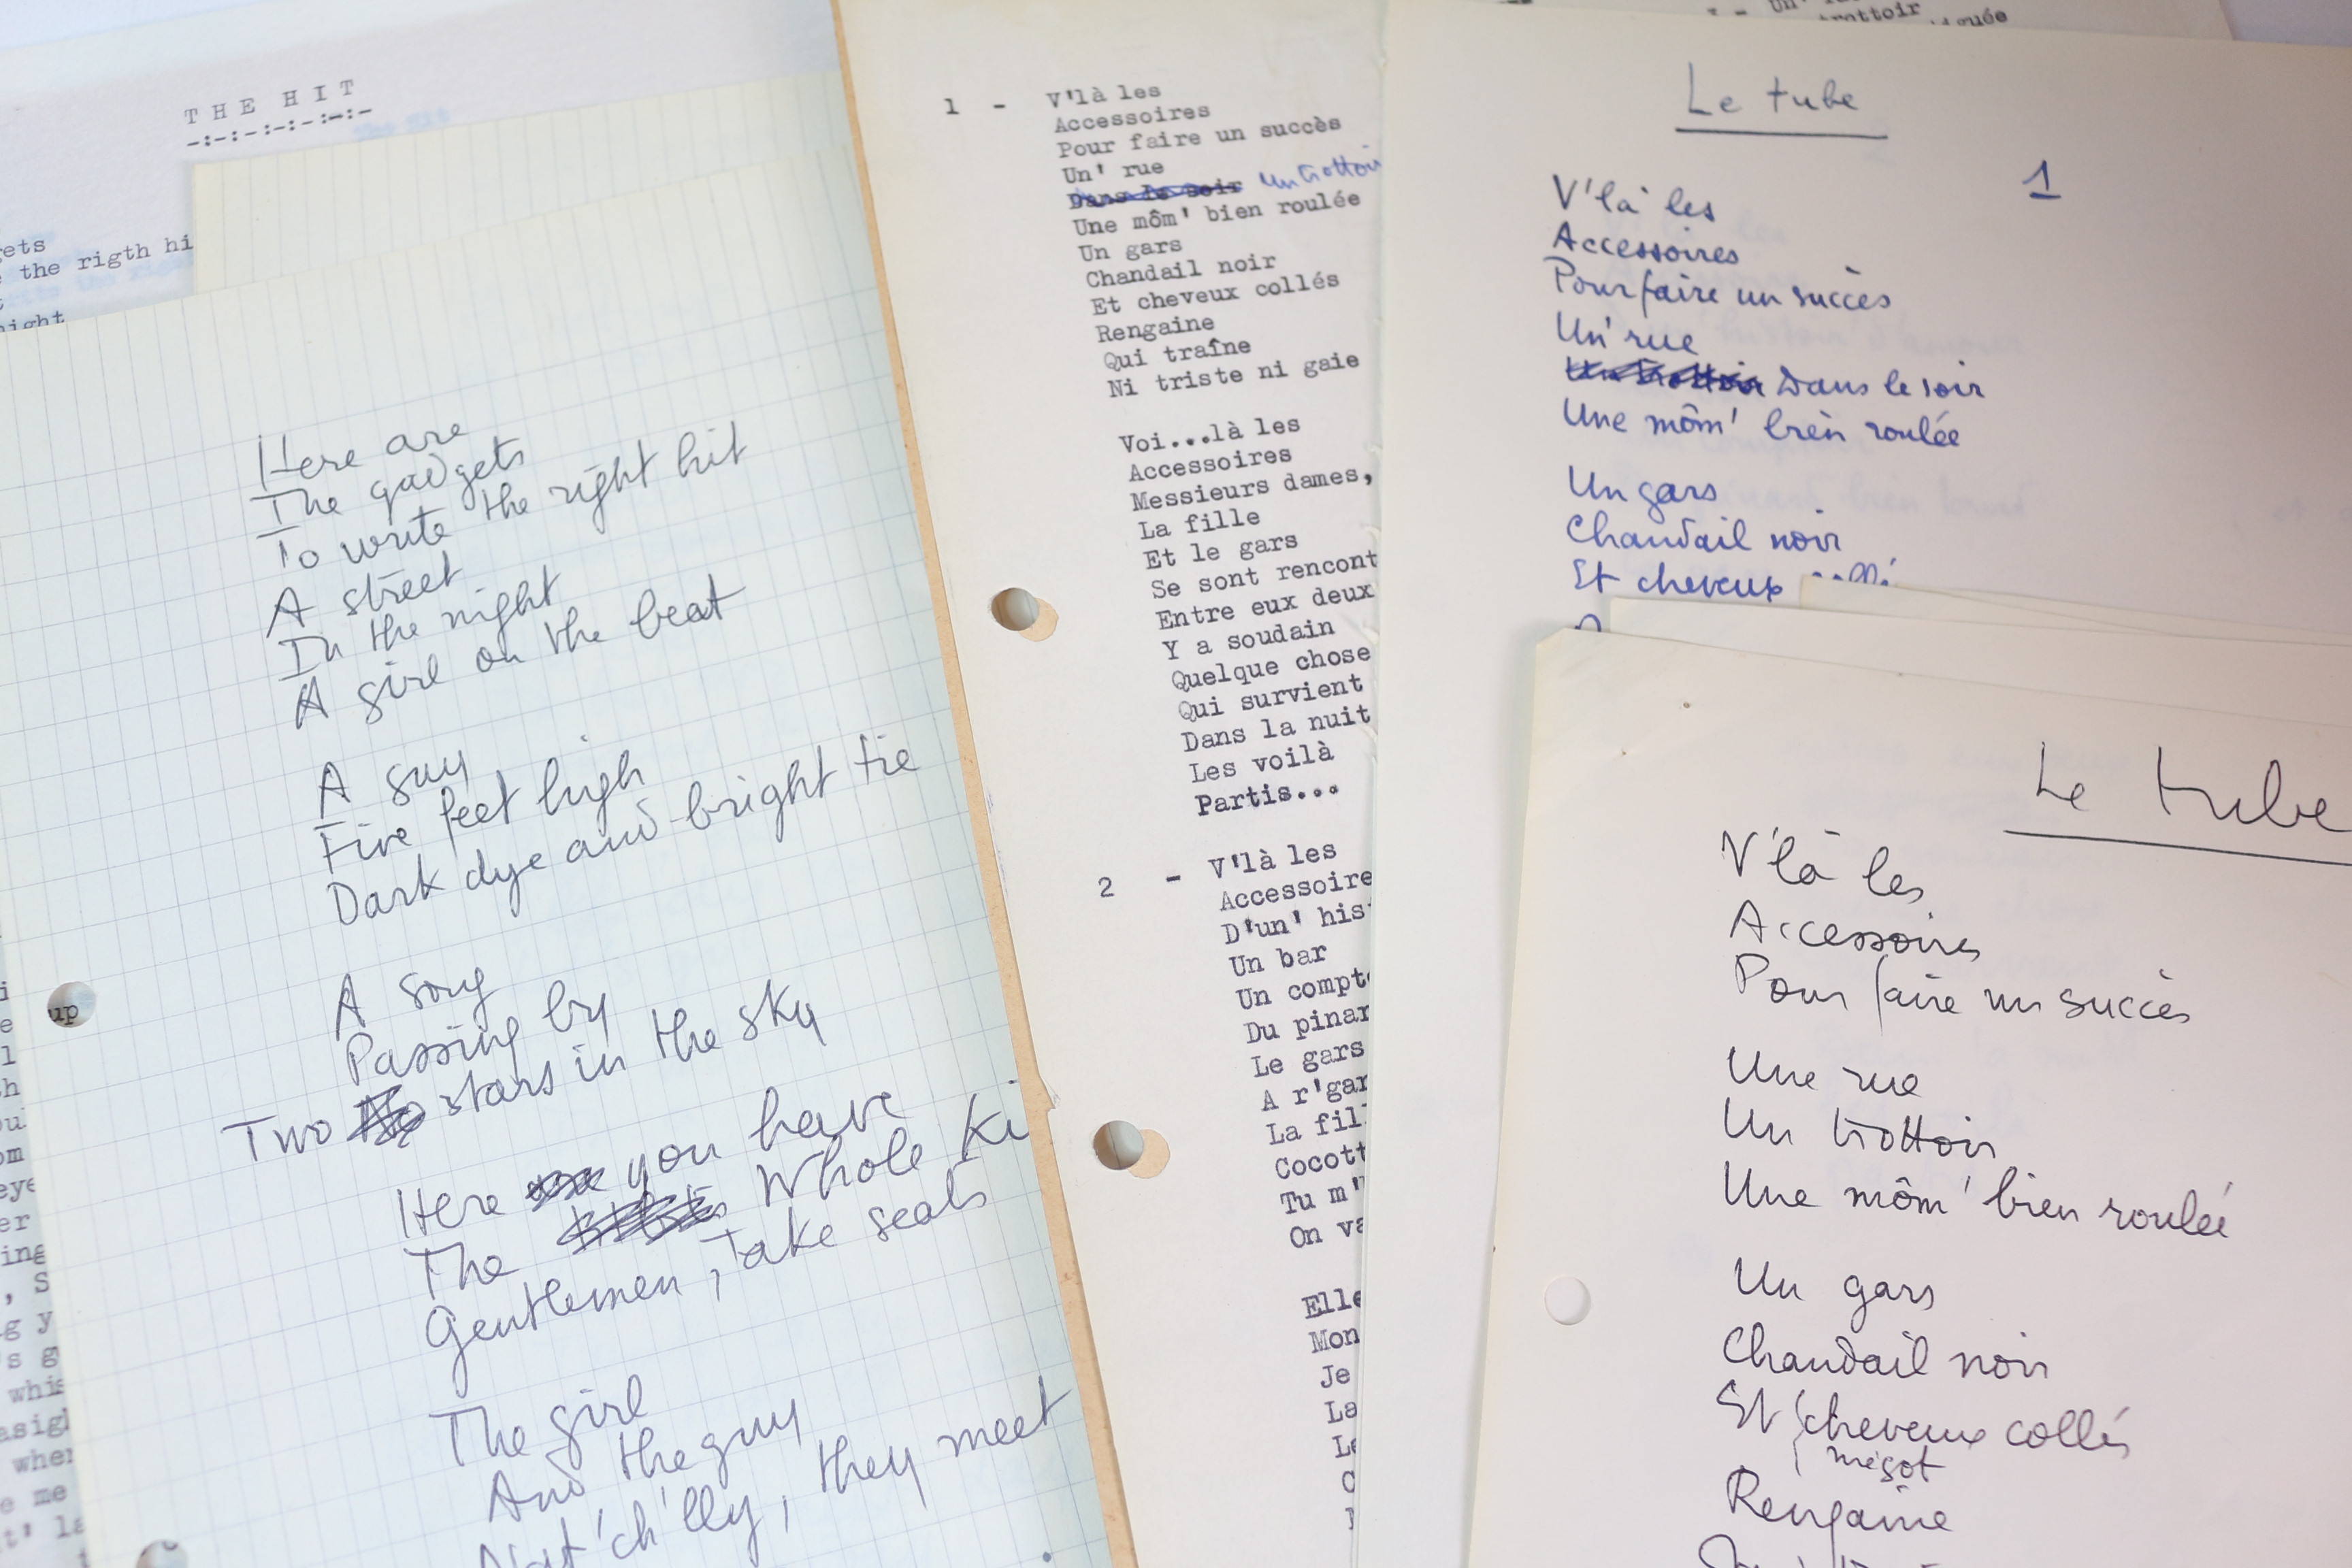 THE HIT
-:-:-:-:-:-:-
the rigth hi
Here are
The gadgets
To write the right hit
A street
In the night
A girl on the beat
A guy
Five feet high
Dark dye and bright tie
A song
Passing by
Two stars in the sky
Here you have
The Whole Ki
Gentlemen, take seats
The girl
And the guy
Nat'ch'lly, they meet
up
1 - V'là les
Accessoires
Pour faire un succès
Un' rue
Dans le soir Un trottoir
Une môm' bien roulée
Un gars
Chandail noir
Et cheveux collés
Rengaine
Qui traîne
Ni triste ni gaie
Voi...là les
Accessoires
Messieurs dames,
La fille
Et le gars
Se sont rencont
Entre eux deux
Y a soudain
Quelque chose
Qui survient
Dans la nuit
Les voilà
Partis...
2 - V'là les
Accessoire
D'un' his
Un bar
Un compt
Du pinar
Le gars
A r'gar
La fil
Cocott
Tu m'
On va
Elle
Mon
Je
La
trottoir
Le tube
1
V'là les
Accessoires
Pour faire un succès
Un' rue
Un trottoir Dans le soir
Une môm' bien roulée
Un gars
Chandail noir
Et cheveux collé
Le tube
V'là les
Accessoires
Pour faire un succès
Une rue
Un trottoir
Une môm' bien roulée
Un gars
Chandail noir
Et cheveux collés
mégot
Rengaine